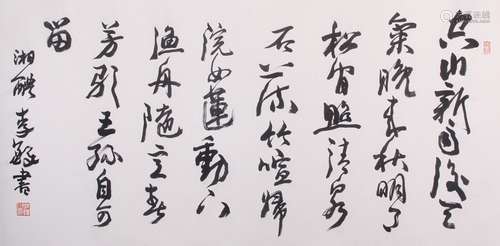 空山新雨後天
氣晚來秋明月
松間照清泉
石上流竹喧歸
浣女蓮動下
漁舟隨意春
芳歇王孫自可
留
湘醴李書